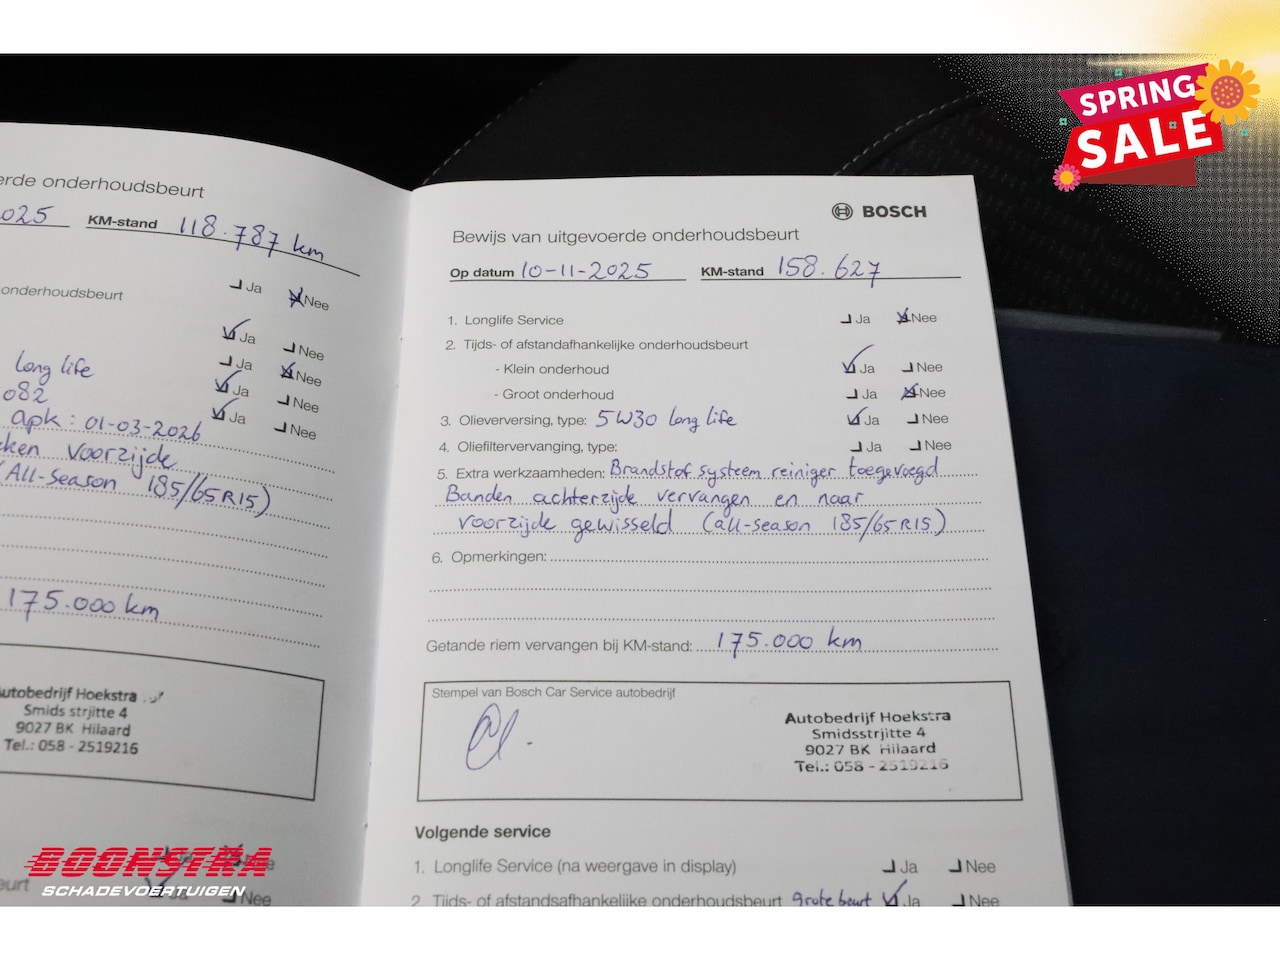 SPRING
SALE
erde onderhoudsbeurt
025 KM-stand 118.787 km
Ja Nee
onderhoudsbeurt
Ja Nee
Ja Nee
long life Ja Nee
082 Ja Nee
apk: 01-03-2026
ken voorzijde
(All-season 185/65R15)
175.000 km
utobedrijf Hoekstra
Smids strjitte 4
9027 BK Hilaard
Tel.: 058 - 2519216
Nee
eurt Ja Nee
BOSCH
Bewijs van uitgevoerde onderhoudsbeurt
Op datum 10-11-2025 KM-stand 158.627
1. Longlife Service Ja Nee
2. Tijds- of afstandafhankelijke onderhoudsbeurt
- Klein onderhoud Ja Nee
- Groot onderhoud Ja Nee
3. Olieverversing, type: 5W30 long life Ja Nee
4. Oliefiltervervanging, type: Ja Nee
5. Extra werkzaamheden: Brandstof systeem reiniger toegevoegd
Banden achterzijde vervangen en naar
voorzijde gewisseld (all-season 185/65R15)
6. Opmerkingen:
Getande riem vervangen bij KM-stand: 175.000 km
Stempel van Bosch Car Service autobedrijf
Autobedrijf Hoekstra
Smidsstrjitte 4
9027 BK Hilaard
Tel.: 058 - 2519216
Volgende service
1. Longlife Service (na weergave in display) Ja Nee
2. Tijds- of afstandsafhankelijke onderhoudsbeurt grote beurt Ja Nee
BOONSTRA
SCHADEVOERTUIGEN